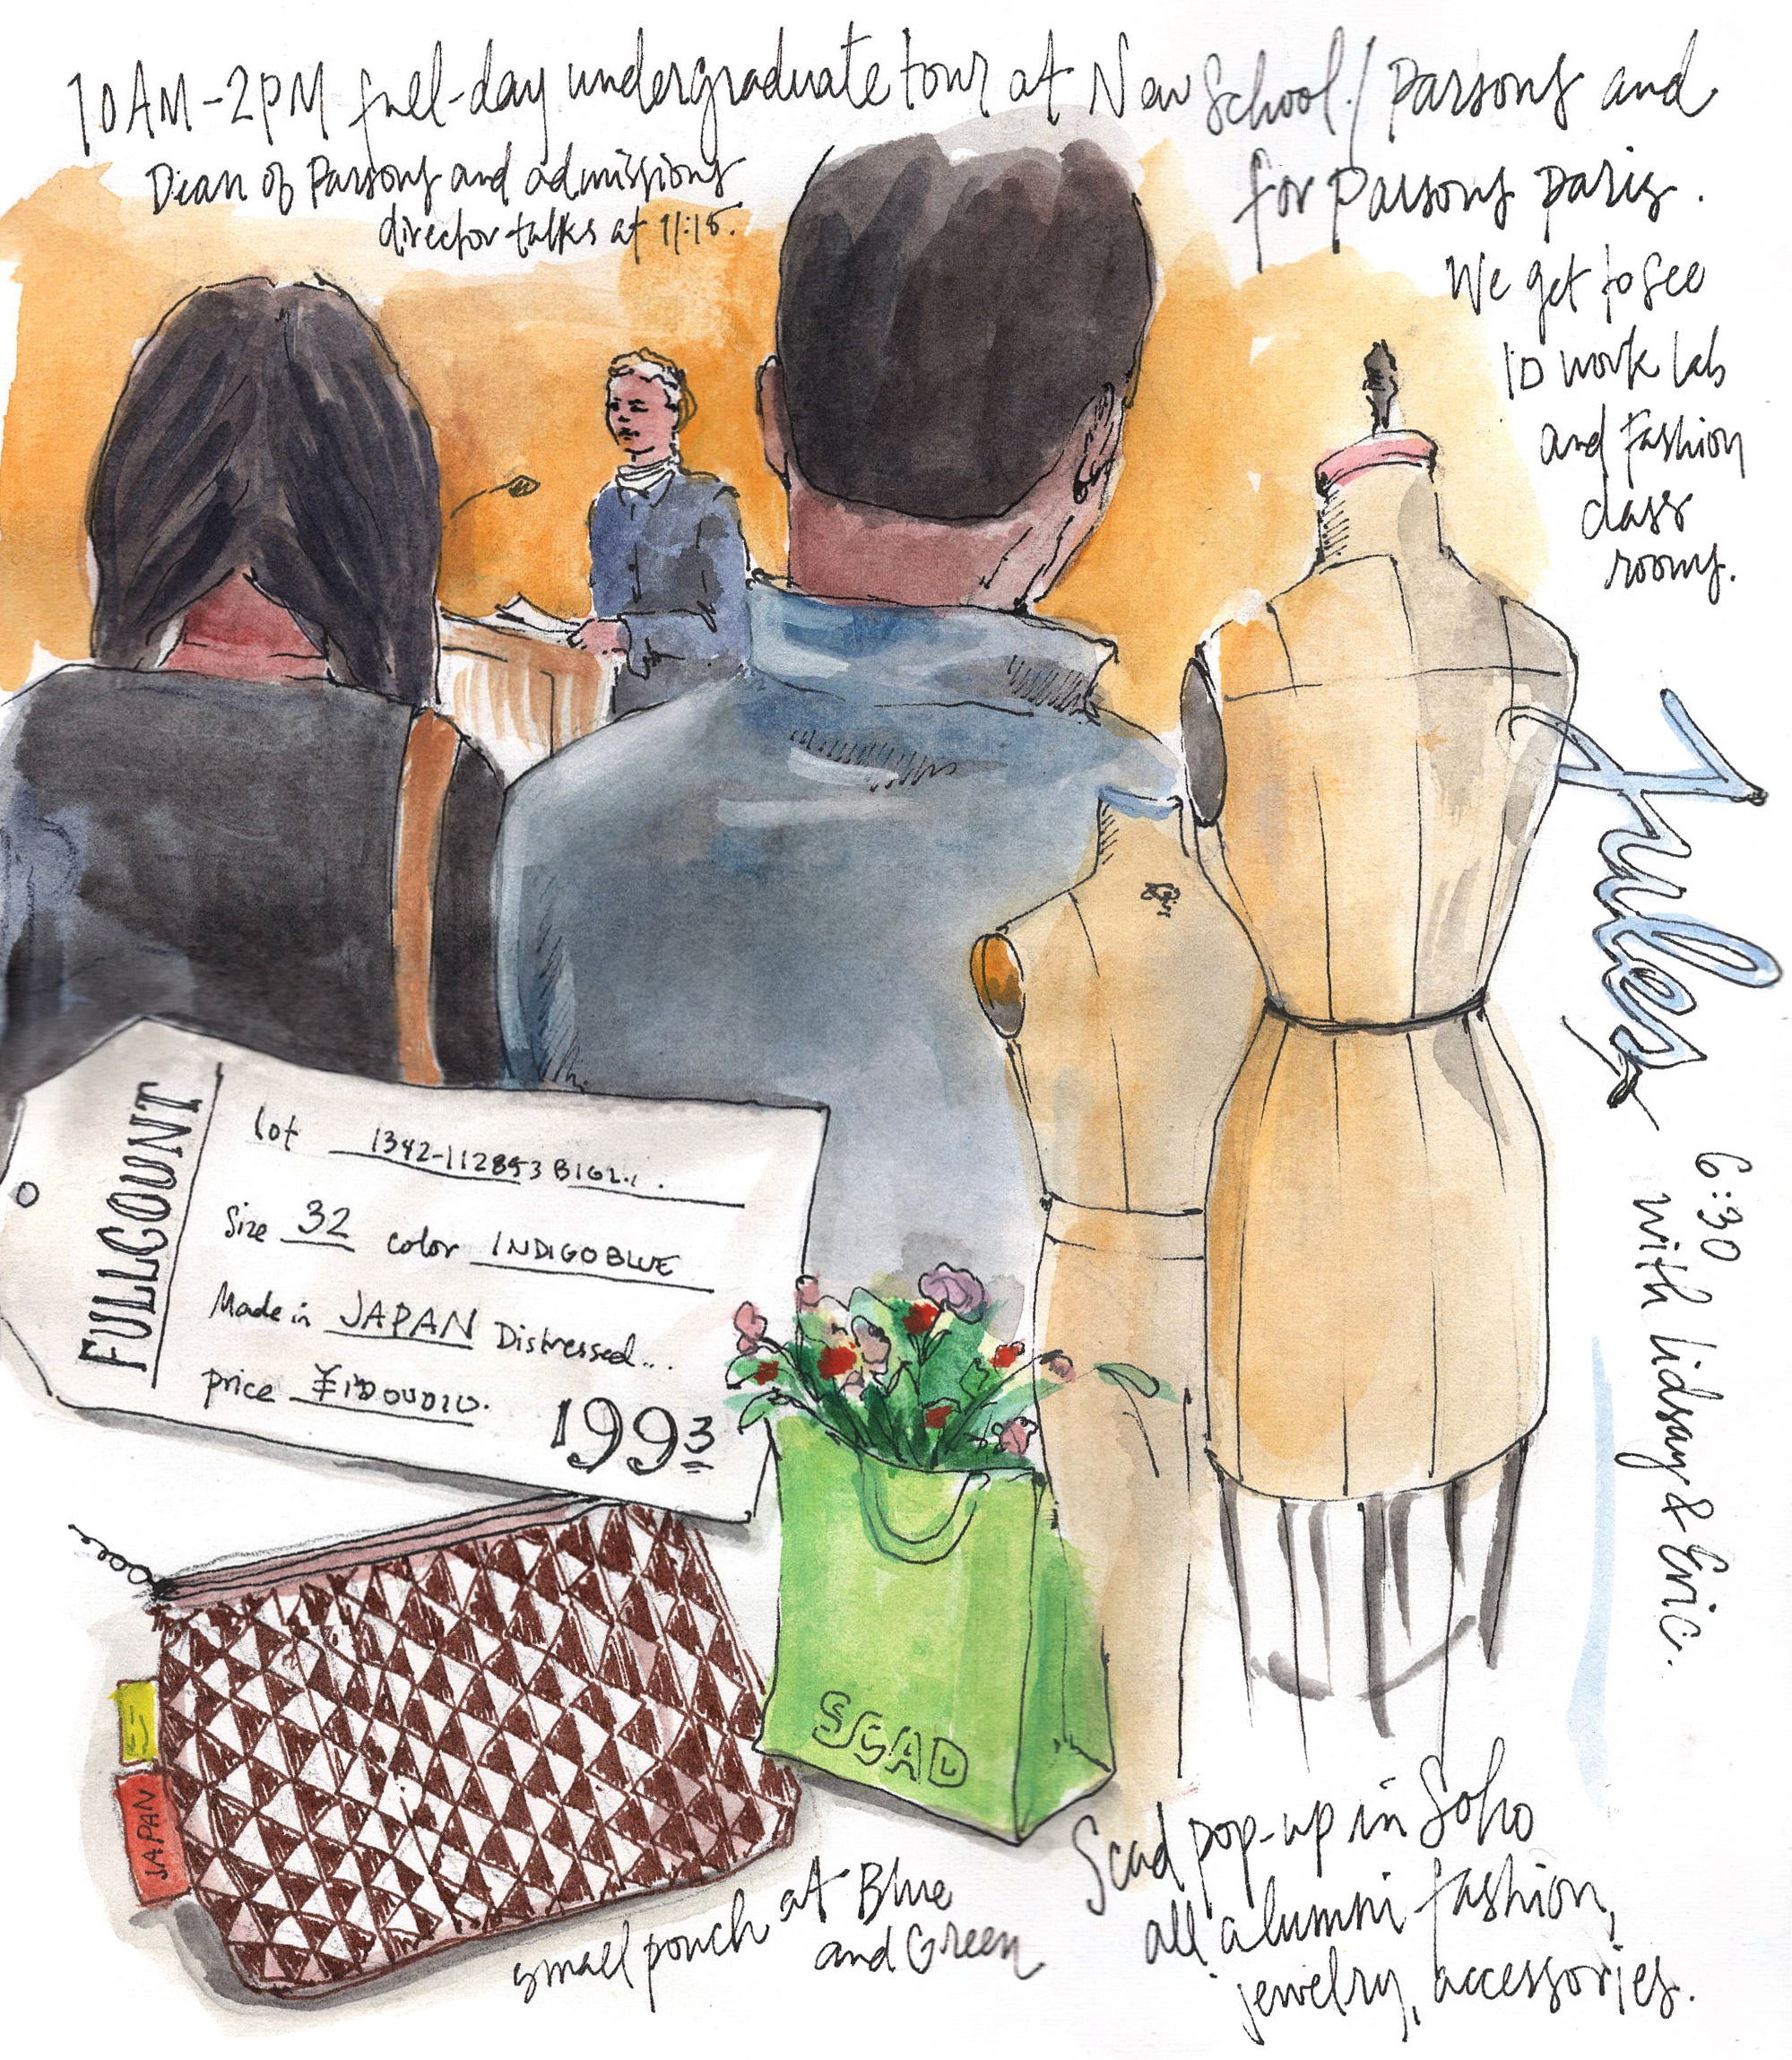 10AM-2PM full-day undergraduate tour at New School/Parsons and
for Parsons Paris.
Dean of Parsons and admissions
director talks at 11:15.
We get to see
ID work lab
and Fashion
class
rooms.
Jules
6:30
with Lidsay & Eric.
FULLCOUNT
Lot 1342-112853
Size 32 color INDIGO BLUE
Made in JAPAN Distressed...
price
1993
JAPAN
SCAD
small pouch at Blue
and Green
Scad pop-up in Soho
all alumni fashion,
jewelry, accessories.